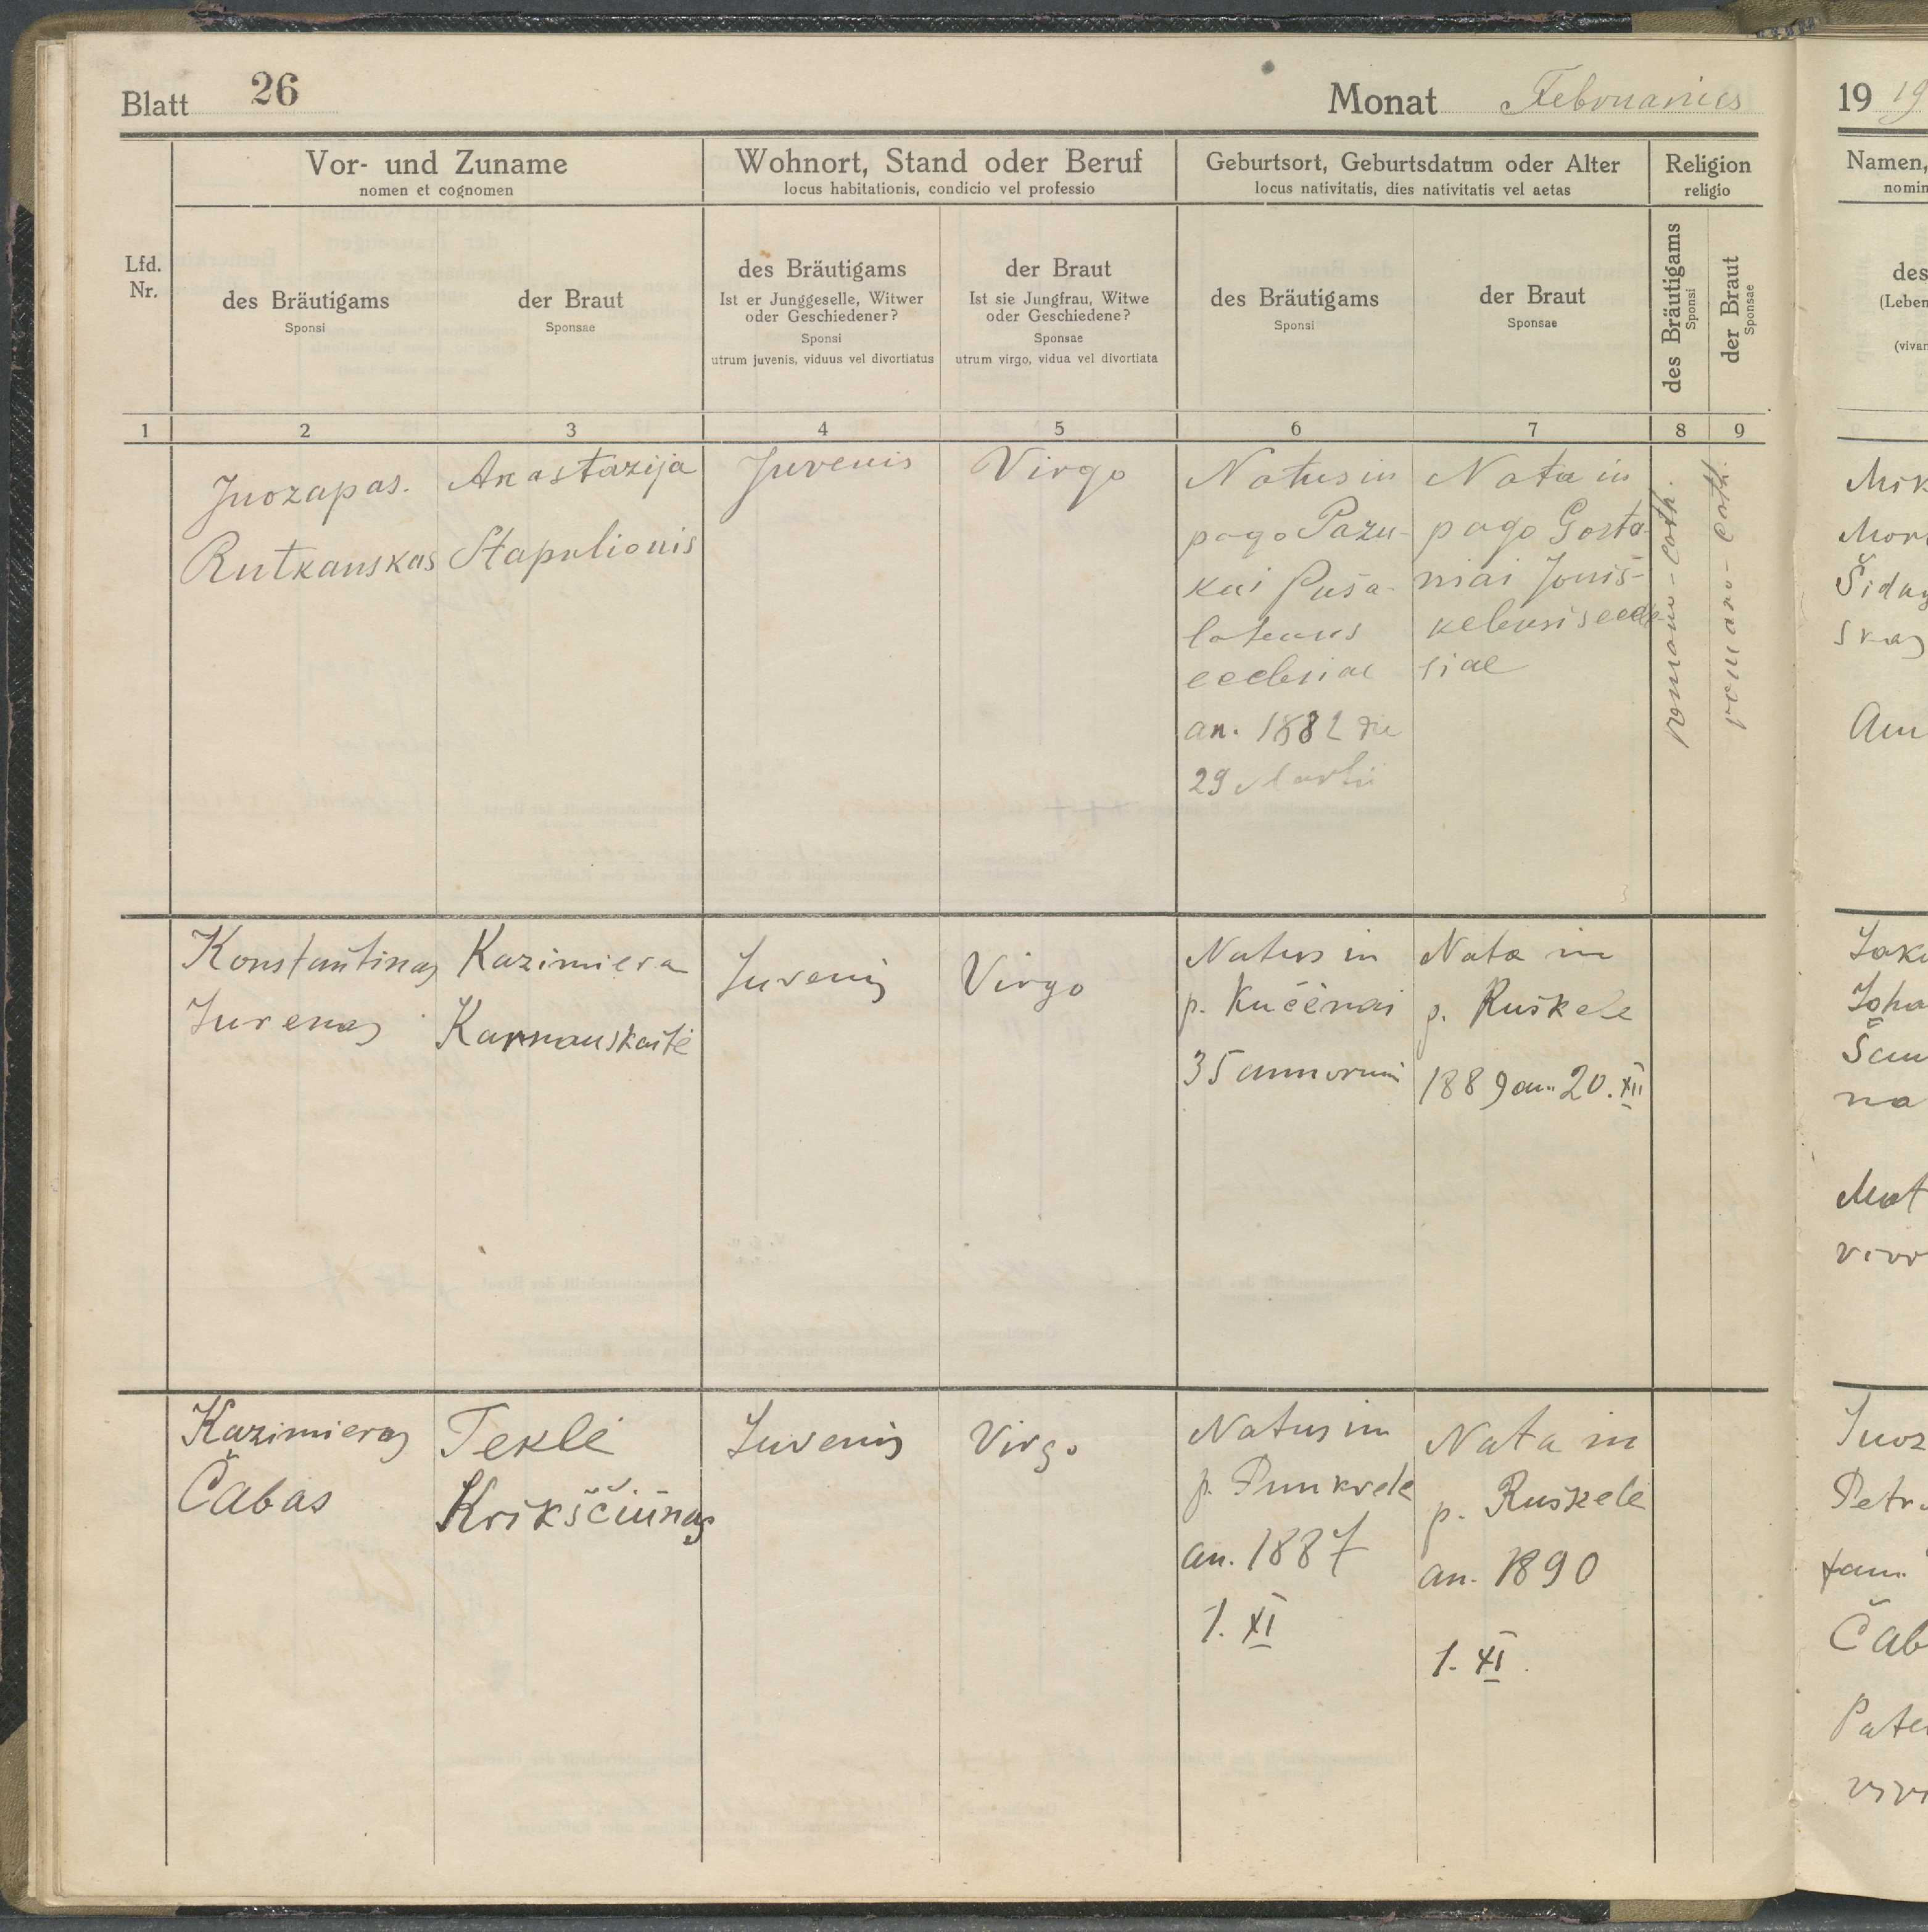 Blatt 26
Monat Februarius
19 19
Vor- und Zuname
nomen et cognomen
Wohnort, Stand oder Beruf
locus habitationis, condicio vel professio
Geburtsort, Geburtsdatum oder Alter
locus nativitatis, dies nativitatis vel aetas
Religion
religio
Namen,
nomin
Lfd.
Nr.
des Bräutigams
Sponsi
der Braut
Sponsae
des Bräutigams
Ist er Junggeselle, Witwer
oder Geschiedener?
Sponsi
utrum juvenis, viduus vel divortiatus
der Braut
Ist sie Jungfrau, Witwe
oder Geschiedene?
Sponsae
utrum virgo, vidua vel divortiata
des Bräutigams
Sponsi
der Braut
Sponsae
des Bräutigams
Sponsi
der Braut
Sponsae
des
(Leben
(vivan
1 2 3 4 5 6 7 8 9
Juozapas.
Rutkauskas
Anastazija
Stapulionis
Juvenis
Virgo
Natus in
pago Pazu-
kai Puša-
lotenus
ecclesiae
an. 1882 die
29 Martii
Nata in
pago Gosta-
niai Joniš-
kelensis eccle-
siae
romano-cath.
romano-cath.
Mik
Šidag
skas
Konstantinas
Jurenas
Kazimiera
Karnauskaitė
Juvenis
Virgo
Natus in
p. Kučėnai
35 annorum
Nata in
p. Ruškele
1889 an. 20. XII
Joha
na
Mat
Kazimieras
Čabas
Teklė
Krikščiūnas
Juvenis
Virgo
Natus in
p. Punkrele
an. 1887
1. XI
Nata in
p. Ruškelė
an. 1890
1. XI.
Juoz
Petr
Čab
Pate
vivi